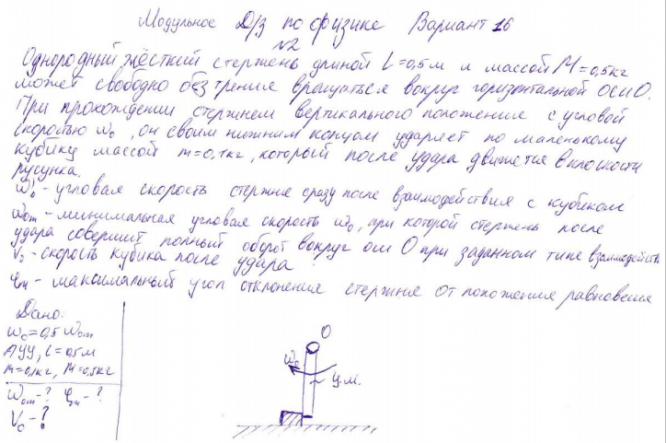 Модульное Д/з по физике Вариант 16
№2
Однородный жёсткий стержень длиной L=0,5м и массой M=0,5кг
может свободно без трения вращаться вокруг горизонтальной оси О.
При прохождении стержнем вертикального положения с угловой
скоростью ω₀, он своим нижним концом ударяет по маленькому
кубику массой m=0,1кг, который после удара движется в плоскости
рисунка.
ω₀' - угловая скорость стержня сразу после взаимодействия с кубиком
ω₀m - минимальная угловая скорость ω₀, при которой стержень после
удара совершит полный оборот вокруг оси О при заданном типе взаимодейств
V₀ - скорость кубика после удара
φm - максимальный угол отклонения стержня от положения равновесия
Дано:
ω₀=0,5 ω₀m
АУУ, L=0,5м
m=0,1кг, M=0,5кг
ω₀m-? φm-?
V₀-?
О
ω₀
ц.м.